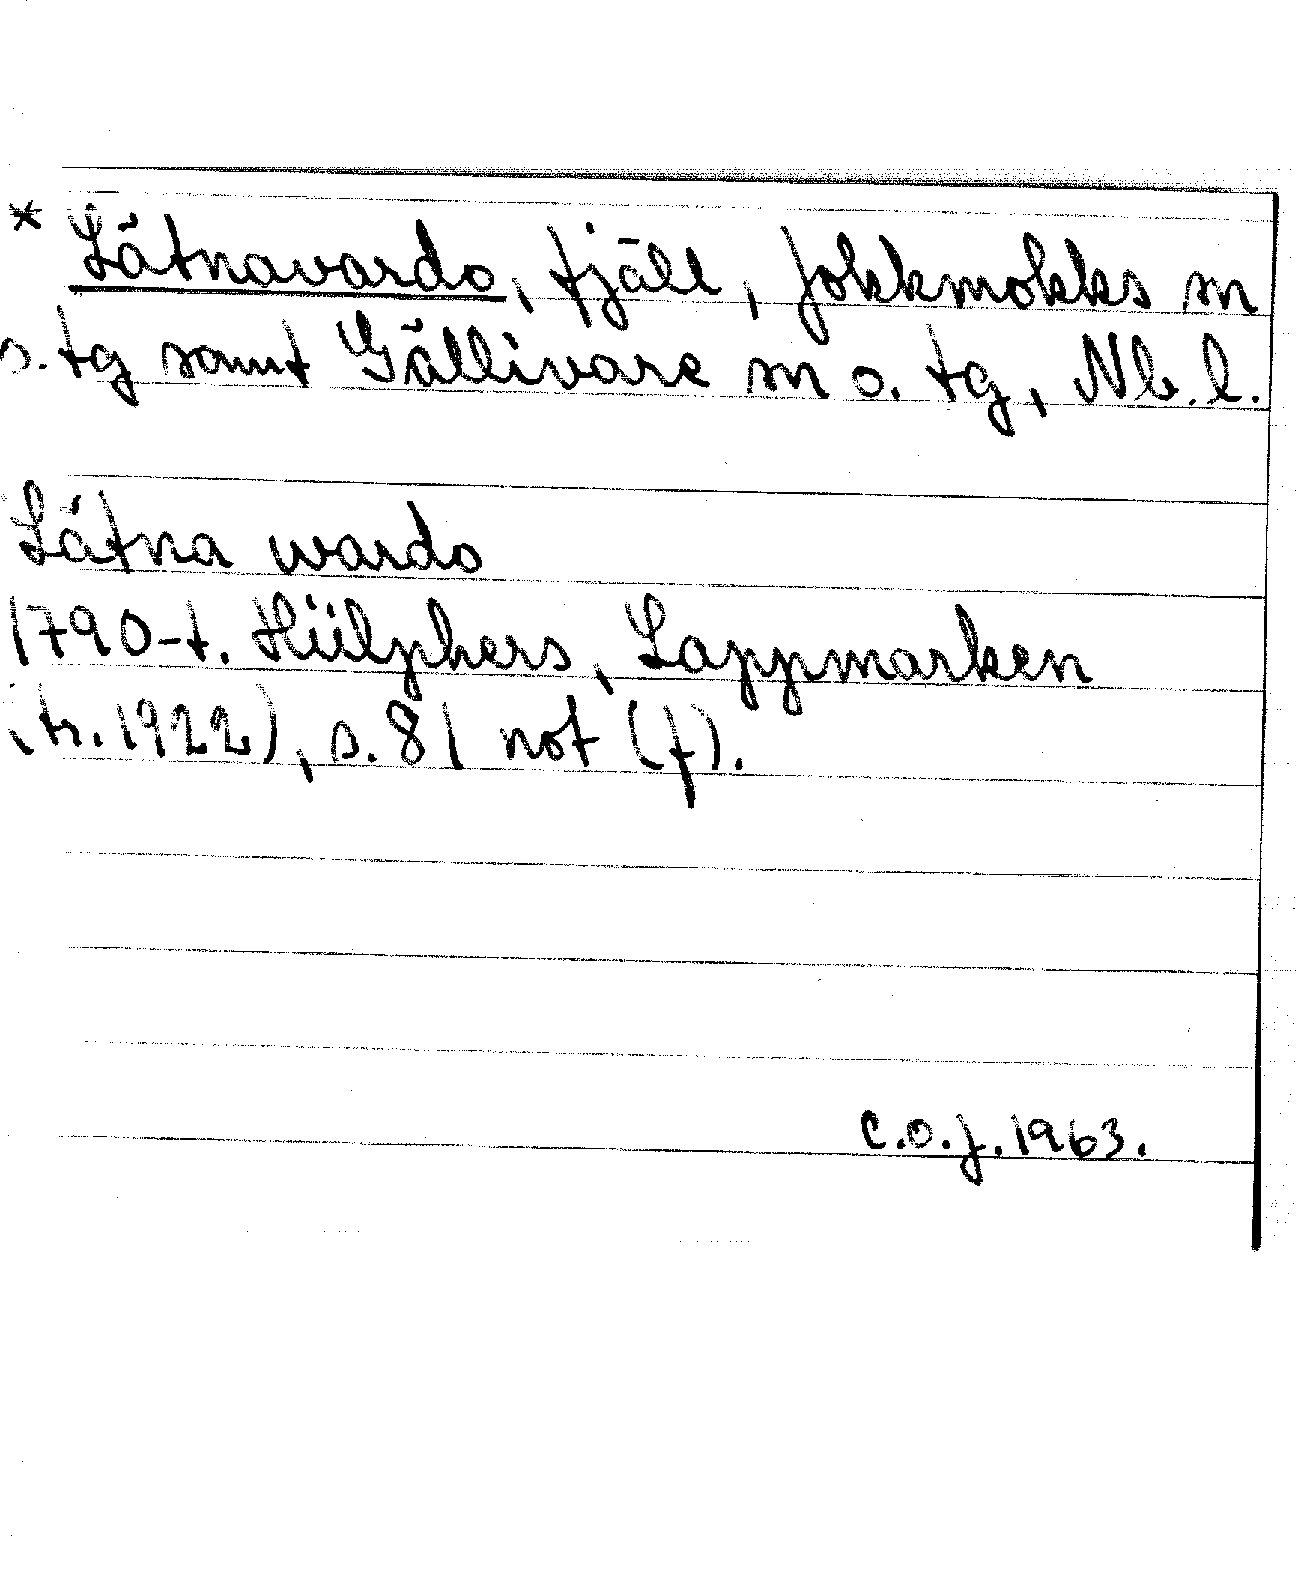 * Lätnavardo, fjäll, Jokkmokks sn
o. tg samt Gällivare sn o. tg, Nb. l.
Lätna wardo
1790-t. Hülphers, Lappmarken
(tr. 1922), s. 81 not (f).
C.O.J. 1963.